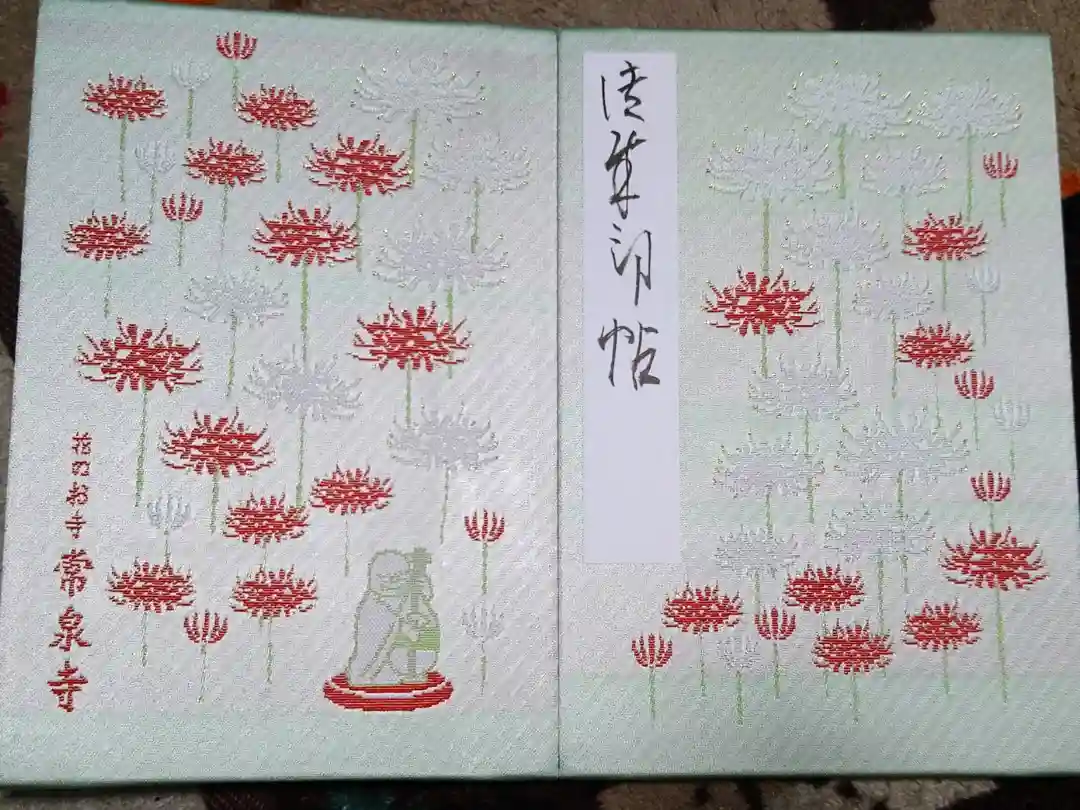 御集印帖
花のお寺 常泉寺